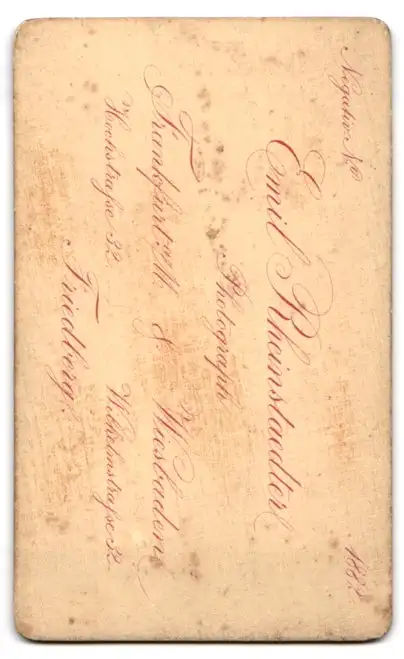 Negativ No
Emil Rheinstadter
Photograph
Frankfurt a/M. & Wiesbaden
Hochstraße 32. Wilhelmstraße 32.
Friedberg.